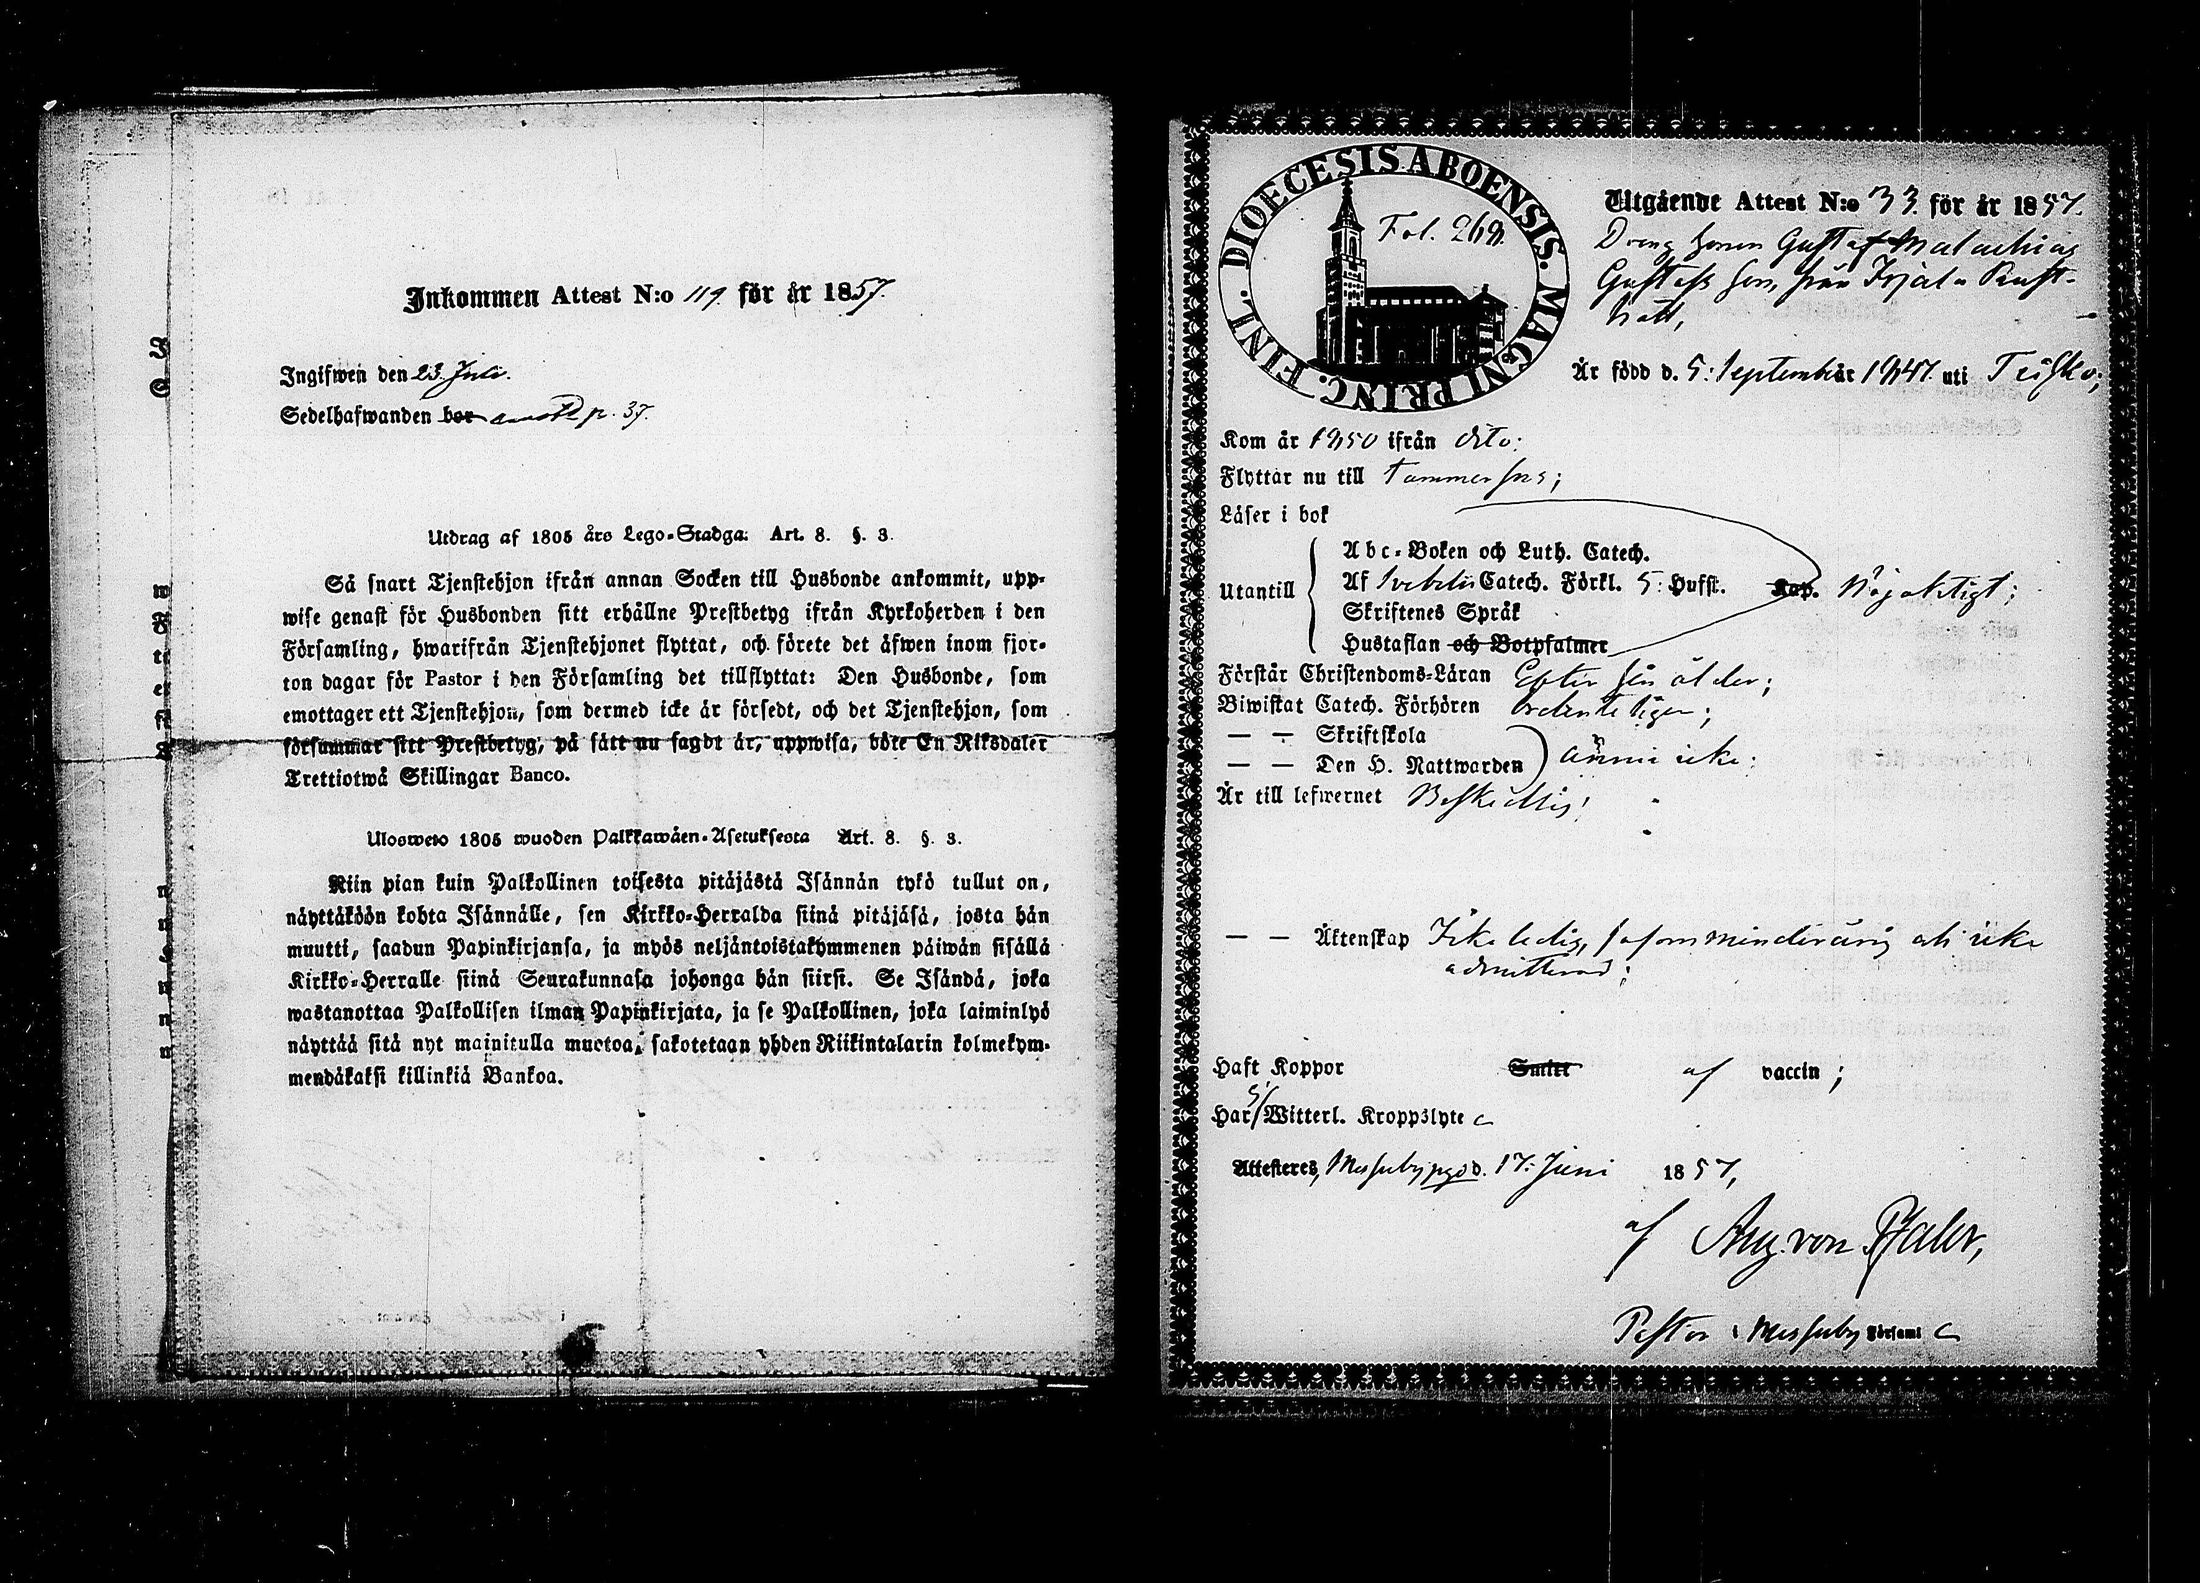 Inkommen Attest N:o 119. för år 1857.
Ingifwen den 23. Juli.
Sedelhafwanden bor p. 37.
Utdrag af 1805 års Lego-Stadga: Art. 8. §. 3.
Så snart Tjenstehjon ifrån annan Socken till Husbonde ankommit, upp-
wise genast för Husbonden sitt erhållne Prestbetyg ifrån Kyrkoherden i den
Församling, hwarifrån Tjenstehjonet flyttat, och förete det äfwen inom fjor-
ton dagar för Pastor i den Församling det tillflyttat: Den Husbonde, som
emottager ett Tjenstehjon, som dermed icke är försedt, och det Tjenstehjon, som
försummar sitt Prestbetyg, på sätt nu sagdt är, uppwisa, böte En Riksdaler
Trettiotwå Skillingar Banco.
Ulosweto 1805 wuoden Palkkawäen-Asetuksesta Art. 8. §. 3.
Niin pian kuin Palkollinen toisesta pitäjästä Isännän tykö tullut on,
näyttäköön kohta Isännälle, sen Kirkko-Herralda siinä pitäjäsä, josta hän
muutti, saadun Papinkirjansa, ja myös neljäntoistakymmenen päiwän sisällä
Kirkko-Herralle siinä Seurakunnasa johonga hän siirsi. Se Isändä, joka
wastanottaa Palkollisen ilman Papinkirjata, ja se Palkollinen, joka laiminlyö
näyttää sitä nyt mainitulla muotoa, sakotetaan yhden Riikintalarin kolmekym-
mendäkaksi killinkiä Bankoa.
DIOECESIS ABOENSIS. MAGNI PRINC. FINL.
Fol. 269.
Utgående Attest N:o 33. för år 1857.
Dreng Gustaf Malachias
Gustafs son, från Rust-
håll,
Är född d. 5: September 1847. uti Teisko;
Kom år 1850 ifrån dito:
Flyttar nu till Tammerfors;
Läser i bok
Utantill
Abc-Boken och Luth. Catech.
Af Svebelii Catech. Förkl. 5: Hufst. Kap. Nöjaktigt;
Skriftenes Språk
Hustaflan och Botpsalmer
Förstår Christendoms-Läran Efter sin ålder;
Biwistat Catech. Förhören ordenteligen;
— — Skriftskola
— — Den H. Nattwarden ännu icke;
Är till lefwernet Beskedlig;
— — Äktenskap Icke ledig, såsom minderårig och icke
admitterad;
Haft Koppor Smitt af vaccin;
Har Witterl. Kroppslyte
Attesteres, Messuby pgd d. 17: Juni 1857,
af Aug. von Pfaler,
Pastor i Messuby Församl